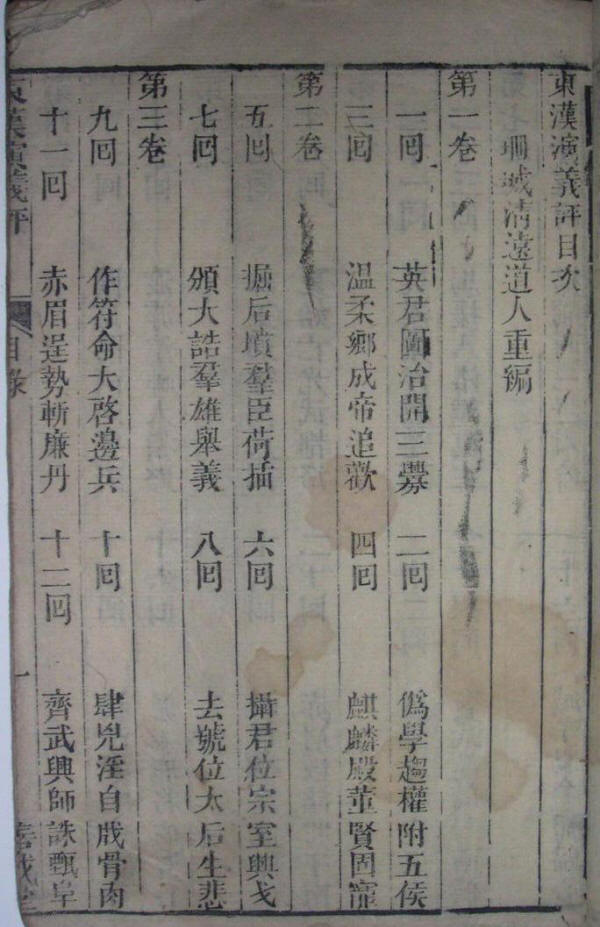 東漢演義評目次
珊城清遠道人重編
第一卷
一回 英君圖治開三釁 二回 僞學趨權附五侯
三回 溫柔鄉成帝追歡 四回 麒麟殿董賢固寵
第二卷
五回 掘后墳羣臣荷插 六回 攝君位宗室興戈
七回 頒大誥羣雄舉義 八回 去號位太后生悲
第三卷
九回 作符命大啓邊兵 十回 肆兇淫自戕骨肉
十一回 赤眉逞勢斬廉丹 十二回 齊武興師誅甄阜
東漢演義評 目錄 一 善成堂